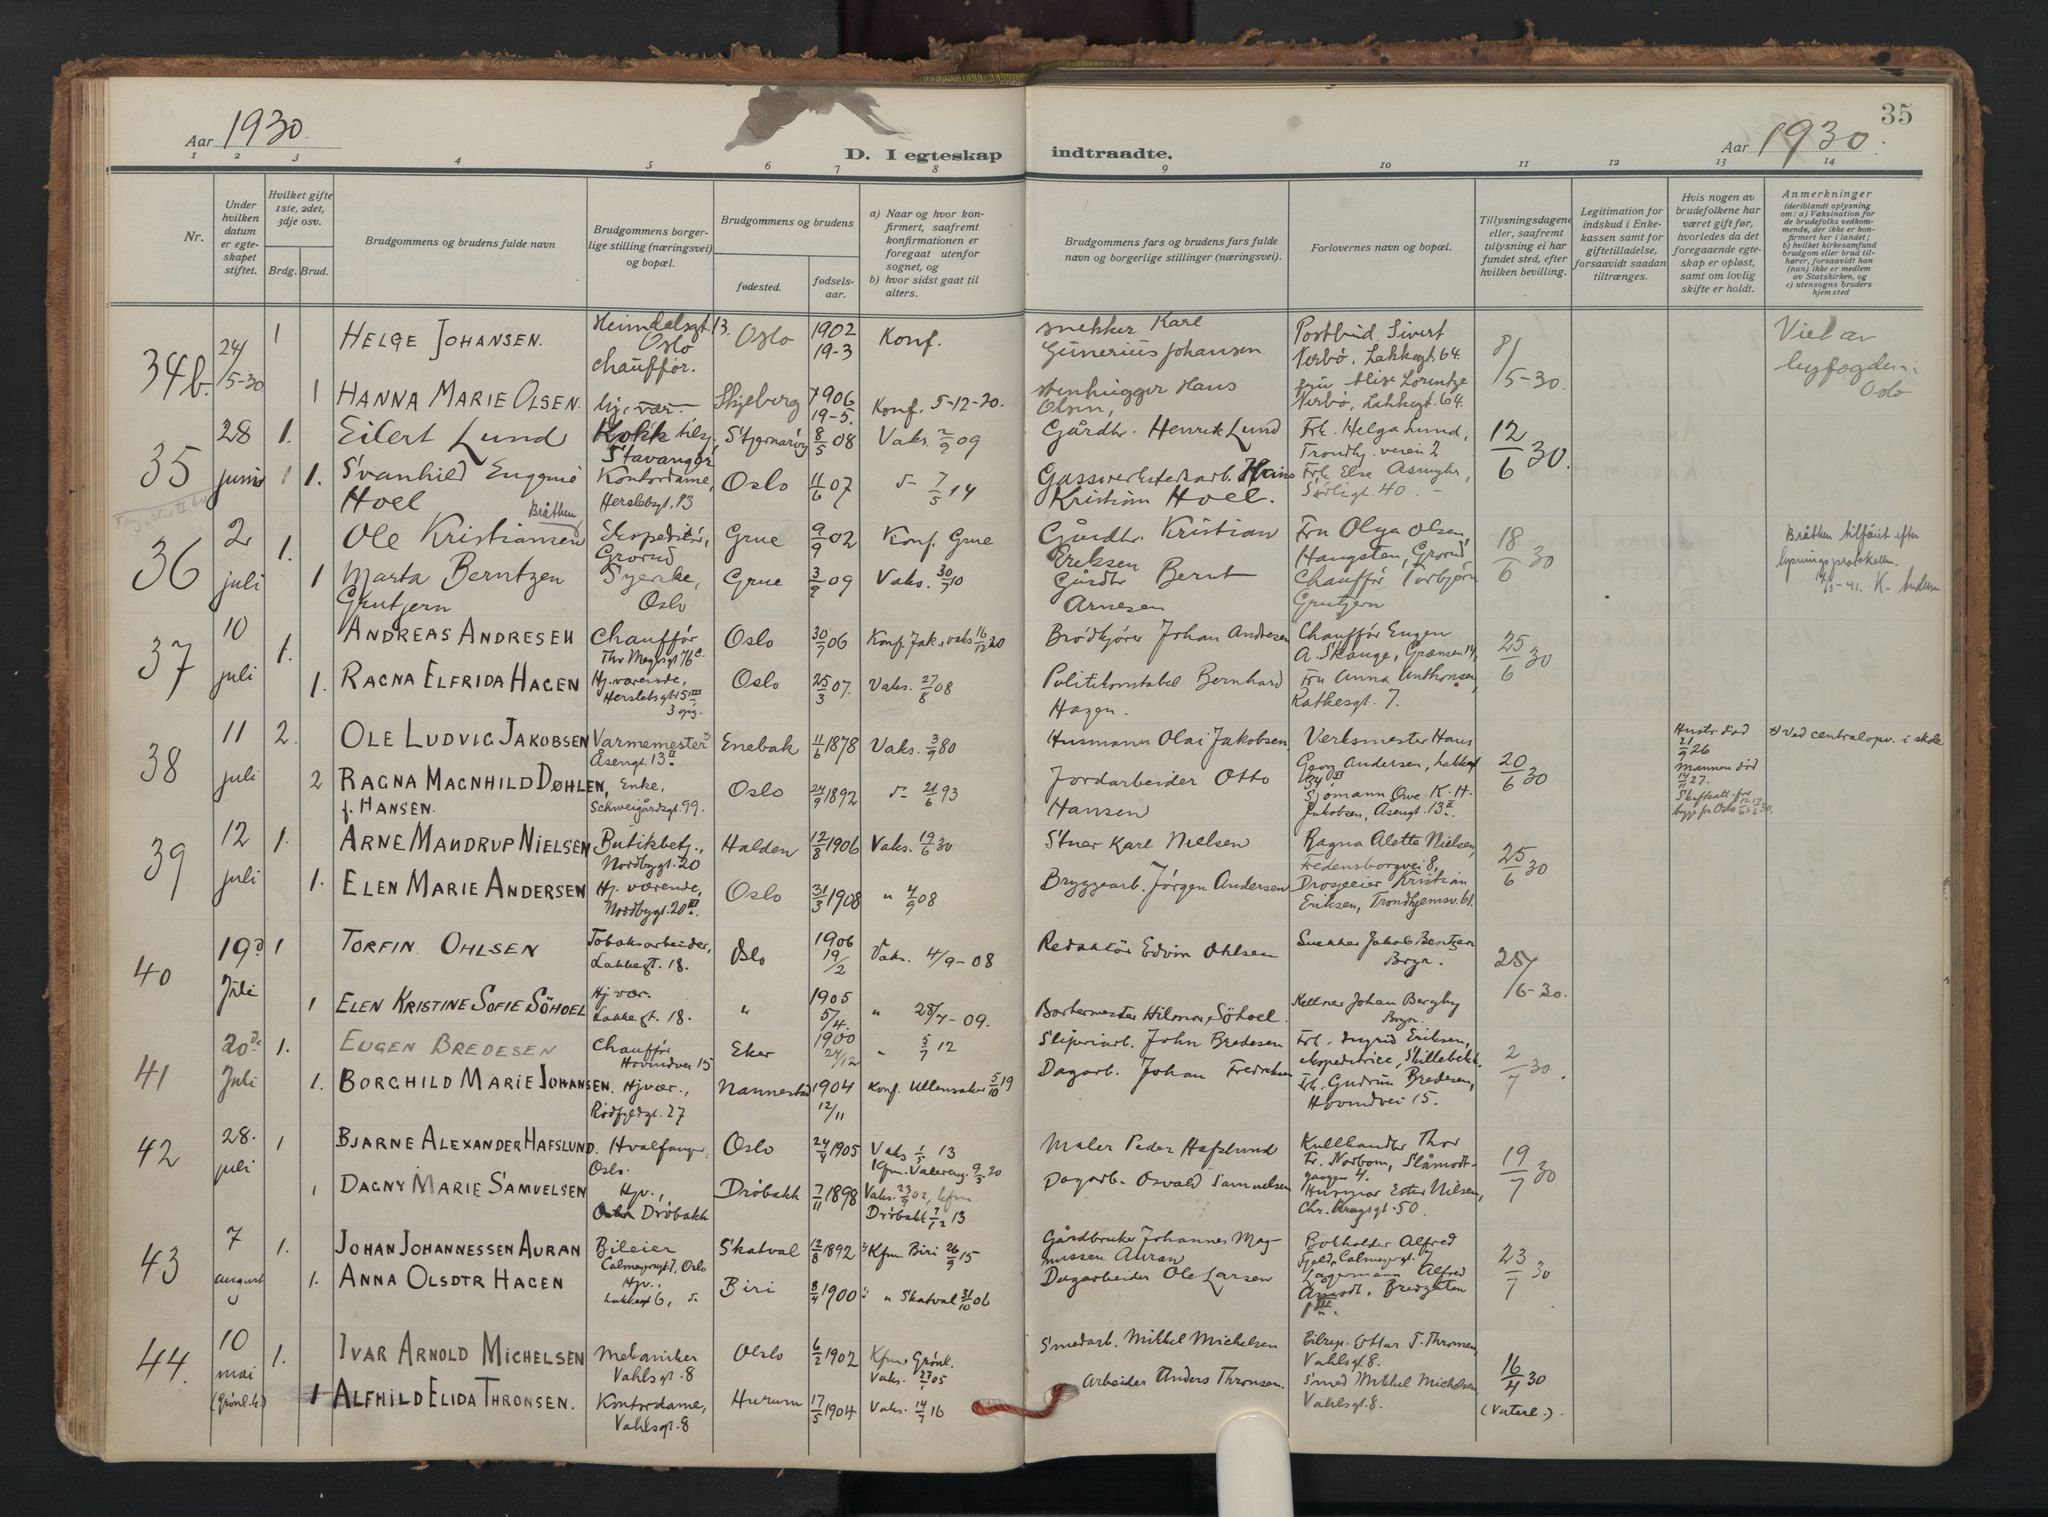 35
Aar 1930.
D. I egteskap indtraadte.
Aar 1930.
1 2 3 4 5 6 7 8 9 10 11 12 13 14
Nr.
Under hvilken datum er egteskapet stiftet.
Hvilket gifte 1ste, 2det, 3dje osv.
Brdg. Brud.
Brudgommens og brudens fulde navn
Brudgommens borgerlige stilling (næringsvei) og bopæl.
Brudgommens og brudens
fødested.
fødselsaar.
a) Naar og hvor konfirmert, saafremt konfirmationen er foregaat utenfor sognet, og
b) hvor sidst gaat til alters.
Brudgommens fars og brudens fars fulde navn og borgerlige stillinger (næringsvei).
Forlovernes navn og bopæl.
Tillysningsdagene eller, saafremt tillysning ei har fundet sted, efter hvilken bevilling.
Legitimation for indskud i Enkekassen samt for giftetilladelse, forsaavidt saadan tiltrænges.
Hvis nogen av brudefolkene har været gift før, hvorledes da det foregaaende egteskap er opløst, samt om lovlig skifte er holdt.
Anmerkninger
(deriblandt oplysning om: a) Vaksination for de brudefolks vedkommende, der ikke er konfirmert her i landet; b) hvilket kirkesamfund brudgom eller brud tilhører, forsaavidt han (hun) ikke er medlem av Statskirken, og c) utensogns bruders hjemsted
34b. 24/5-30 1 HELGE JOHANSEN. Heimdalsgt. 13. Oslo chauffør. Oslo 1902 19-3 Konf. snekker Karl Gunerius Johansen. Postbud Sivert Nerbø, Lakkegt. 64. 8/5-30. Viet av byfogden i Oslo
1 HANNA MARIE OLSEN. hj. vær. Skjeberg 1906 19-5. Konf. 5-12-20. stenhugger Hans Olsen, fru Alise Lorentze Nerbø, Lakkegt. 64.
35 28 juni 1. Eilert Lund Kokk Stavanger 8/5 08 Vaks. 2/9 09 Gårdbr. Henrik Lund Frk. Helga Lund, Trondhj. veien 2 12/6 30.
1. Svanhild Eugenie Hoel Kontordame, Herslebsgt. 13 Oslo 11/6 07 7/5 14 Gassverkstedarb. Hans Kristian Hoel. Frk. Else
36 2 juli 1. Ole Kristiansen Bråthen Ekspeditør, Grorud Grue 9/9 02 Konf. Grue Gårdbr. Kristian Eriksen Fru Olga Olsen, Haugsten, Grorud 18/6 30 Bråthen tilføiet efter lysningsprotokollen.
1 Marta Berntzen Grutjern Syerske, Oslo Grue 3/9 09 Vaks. 30/9 10 Gårdbr Bernt Arnesen Chauffør Torbjørn Grutjern
37 10 juli 1. ANDREAS ANDRESEN Chauffør Thv Meyersgt 76c. Oslo 30/7 06 Konf. Jak., vaks 16/12 20 Brødkjører Johan Andresen Chauffør Eugen A. Skauge, Grænsen 14, 25/6 30
1. RAGNA ELFRIDA HAGEN Hj. værende, Herslebsgt 15 III 3 opg. Oslo 25/3 07. Vaks. 27/8 08 Politikonstabel Bernhard Hagen. Fru Anna Anthonsen, Rathkesgt. 7.
38 11 juli 2. OLE LUDVIG JAKOBSEN Varmemester Åsengt. 13 II Enebak 11/6 1878 Vaks. 3/9 80 Husmann Olai Jakobsen, Verksmester Hans Georg Andersen, Lakkegt 20/6 30 Hustr. død 21/9 26 Ved centralopv. i skole
2 RAGNA MAGNHILD DØHLEN, f. HANSEN. Enke, Schweigårdsgt. 99. Oslo 24/9 1892 21/6 93 Jordarbeider Otto Hansen Sjømann Ove K. H. Jakobsen, Åsengt. 13 II. Mannen død 14/11 27.
39 12 juli 1. ARNE MANDRUP NIELSEN Butikkbetj., Nordbygt. 20 Halden 12/8 1906 Vaks. 19/6 30 Stuer Karl Nielsen Ragna Alette Nielsen, Fredensborgvei 8, 25/6 30
1. ELEN MARIE ANDERSEN Hj. værende, Nordbygt. 20 III. Oslo 31/3 1908 " 4/9 08 Bryggearb. Jørgen Andersen Drosjeeier Kristian Eriksen, Trondhjemsv. 61.
40 19d Juli 1 TORFIN OHLSEN Tobaksarbeider, Lakkegt. 18. Oslo 1906 19/2 Vaks. 4/9-08 Redaktør Edvin Ohlsen Snekker Jakob Berntzen Bryn. 25/6-30.
1 ELEN KRISTINE SOFIE SÖHOEL Hj vær. Lakkegt. 18. " 1905 5/4. " 28/7-09. Borkermester Hilmar Söhoel. Kellner Johan Bergby Bryn.
41 20de Juli 1. EUGEN BREDESEN Chauffør Hovindvei 15 Eker 1900 24/12 " 5/7 12 Sliperiarb. John Bredesen Frk. Ingrid Eriksen, ekspeditrice, Skillebekk. 2/7 30.
1. BORGHILD MARIE JOHANSEN. Hj vær., Rødfjeldgt. 27 Nannestad 1904 12/11 Konf. Ullensaker 5/10 19 Dagarb. Johan Fredriksen Frk. Gudrun Bredesen, Hovindvei 15.
42 28. juli 1 BJARNE ALEXANDER HAFSLUND. Hvalfanger, Oslo. Oslo 24/4 1905 Vaks 1/5 13 Kfm. Valereng. 9/5 20 Maler Peder Hafslund Kullhandler Thor Fr. Norbom, Slåmotgangen 4. 19/7 30
1 DAGNY MARIE SAMUELSEN Hjv., Drøbakk Drøbakk 7/11 1898 Vaks. 23/9 02, kfm Drøbakk 7/12 13 Dagarb. Osvald Samuelsen Husmor Ester Nilsen, Chr. Krogsgt. 50.
43 7 august 1. JOHAN JOHANNESSEN AURAN Bileier Calmeyersgt 7, Oslo Skatval 12/8 1892 Kfm Biri 26/9 15 Gårdbruker Johannes Magnussen Auran Botholder Alfred Fjeld, Calmeyersgt. 7 23/7 30
1. ANNA OLSDTR HAGEN Hjv., Lakkegt 6, Biri 8/4 1900 " Skatval 31/10 06 Dagarbeider Ole Larsen Lagermann Alfred Åmodt, Bredgaten
44. 10 mai (Grønl. k.) 1. IVAR ARNOLD MICHELSEN Mekaniker Vahlsgt. 8 Oslo 6/2 1902 Kfm Grønl. Vaks. 27/1 05 Smedarb. Mikkel Michelsen Bilrep. Ottar T. Thronsen, Vahlsgt 8. 16/4 30 (Vaterl.)
1 ALFHILD ELIDA THRONSEN. Kontordame, Vahlsgt. 8 Hurum 17/5 1904 Vaks. 14/7 16 Arbeider Anders Thronsen. Smed Mikkel Michelsen, Vahlsgt. 8.